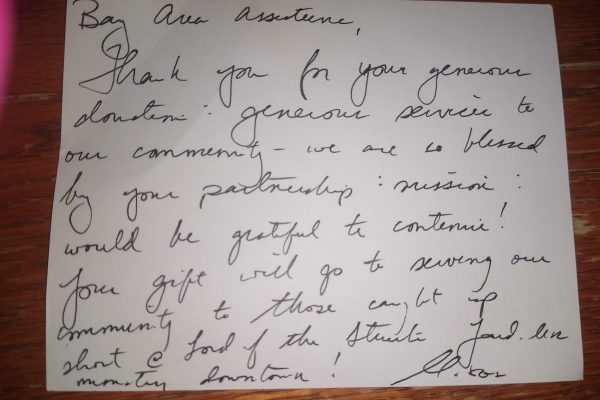 Bay Area Assistance,
Thank you for your generous
donation : generous service to
our community - we are so blessed
by your partnership : mission :
would be grateful to continue!
Your gift will go to serving our
community to those caught up
short @ Lord of the Streets
ministry downtown!